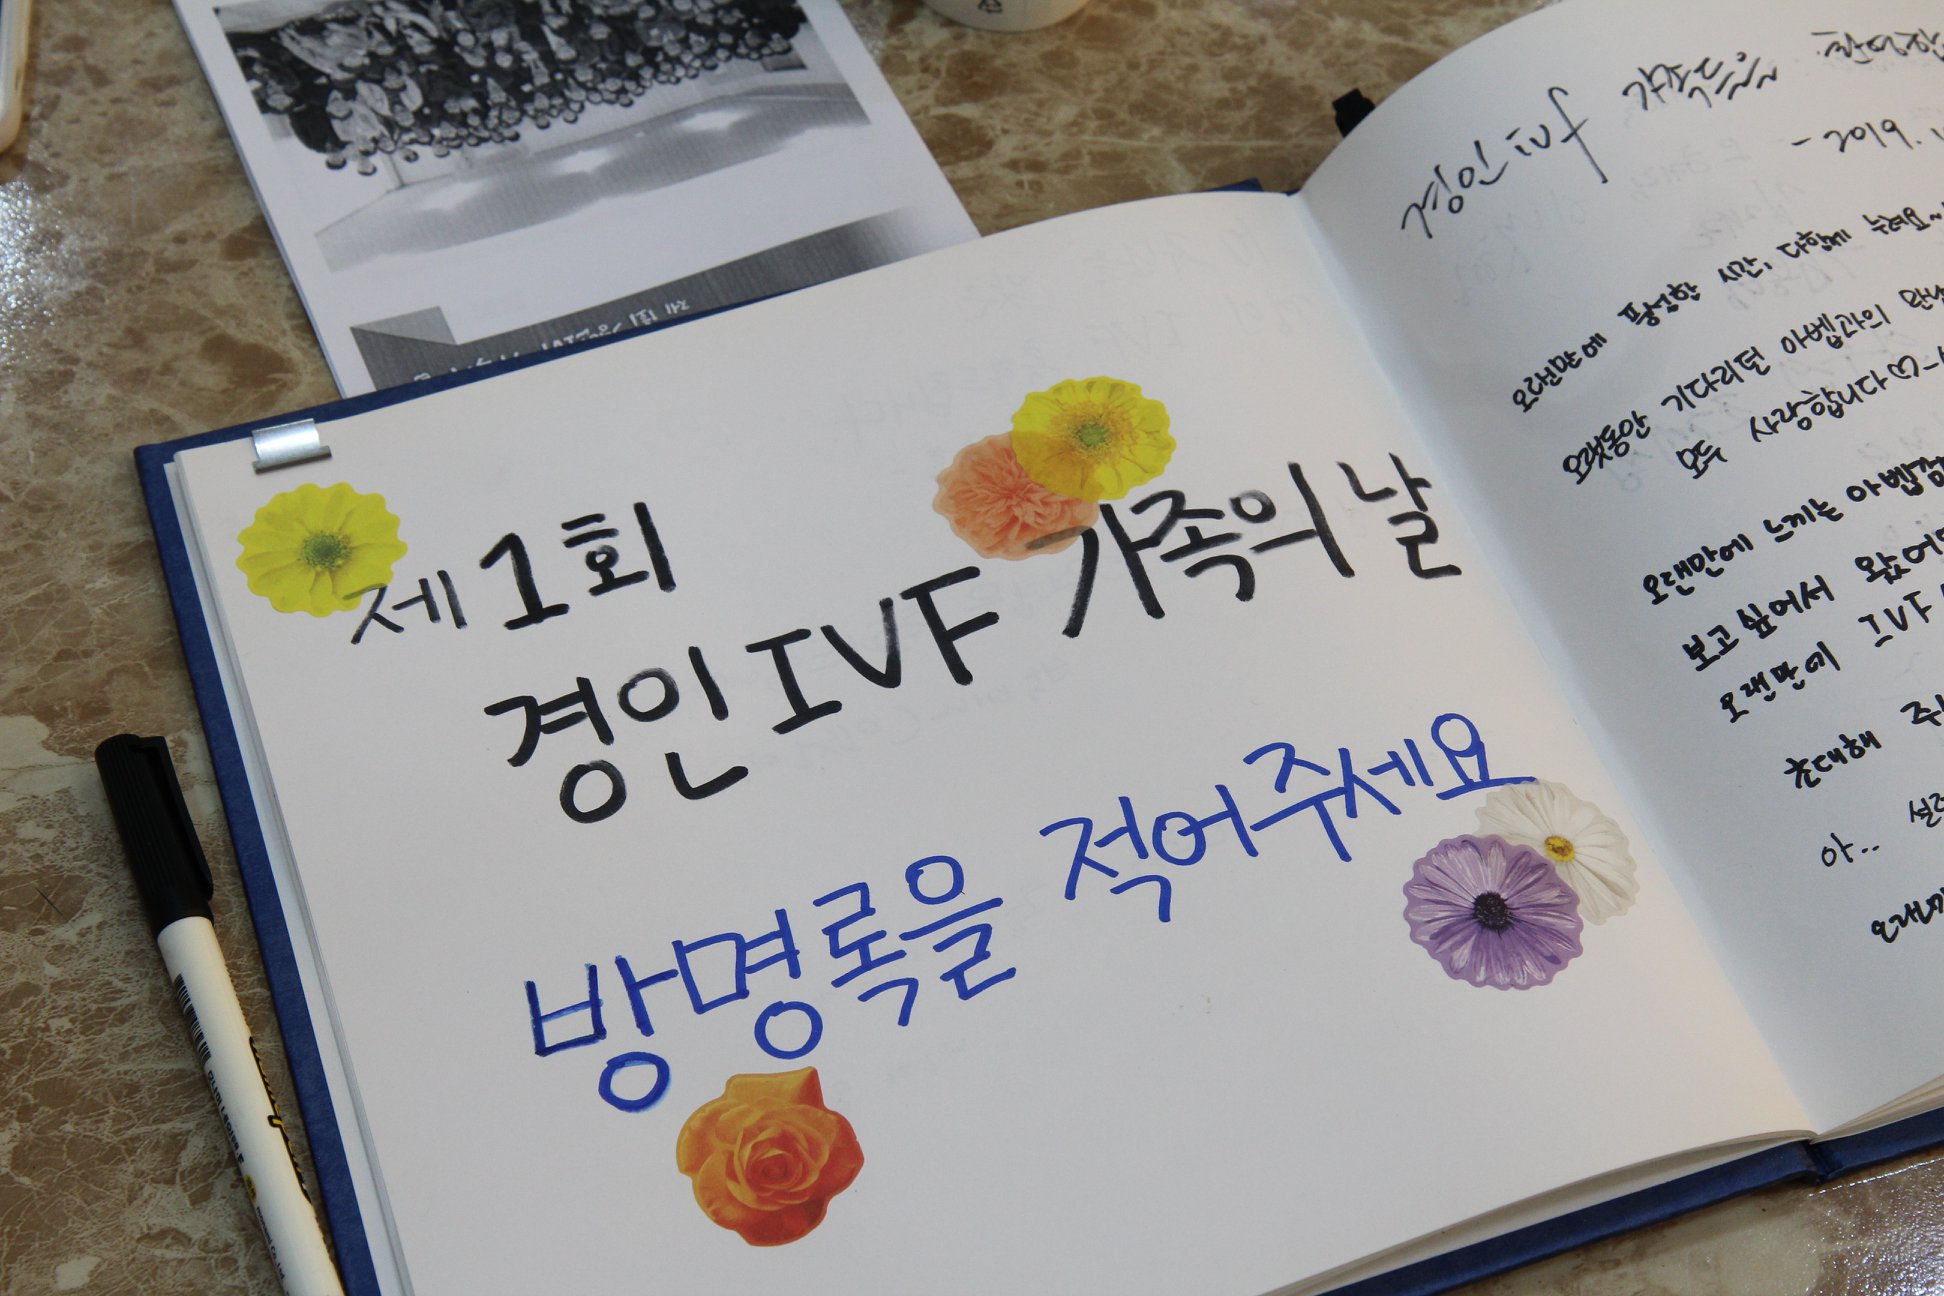 제1회
경인 IVF 가족의 날
방명록을 적어주세요
경인 ivf 가족들을
- 2019.
오랜만에 풍성한 시간, 다함께 누려요~
오랫동안 기다리던 아벱과의
모두 사랑합니다♡
오랜만에 느끼는 아벱
보고싶어서 왔어
오랜만에 IVF
초대해
아..